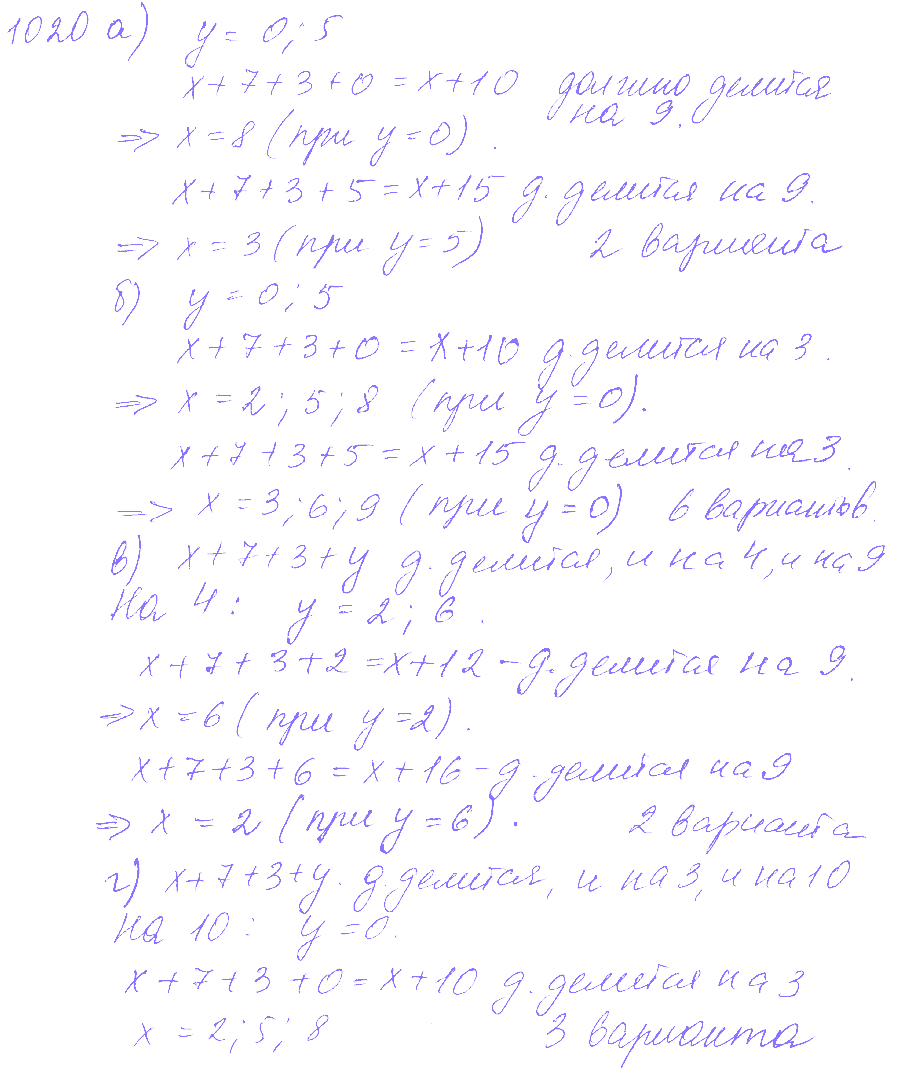 1020 а) y = 0; 5
x+7+3+0 = x+10 должно делится
на 9.
=> x=8 (при y=0).
x+7+3+5=x+15 д. делится на 9.
=> x=3 (при y=5) 2 варианта
б) y=0; 5
x+7+3+0 = x+10 д. делится на 3.
=> x=2; 5; 8 (при y=0).
x+7+3+5=x+15 д. делится на 3.
=> x=3; 6; 9 (при y=0) 6 вариантов.
в) x+7+3+y д. делится, и на 4, и на 9
На 4: y=2; 6.
x+7+3+2=x+12 - д. делится на 9.
=> x=6 (при y=2).
x+7+3+6 = x+16 - д. делится на 9
=> x=2 (при y=6). 2 варианта
г) x+7+3+y. д. делится, и на 3, и на 10
На 10: y=0.
x+7+3+0=x+10 д. делится на 3
x=2; 5; 8 3 варианта